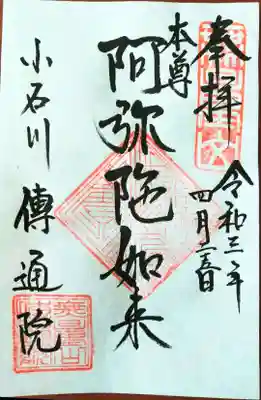 奉拝
令和三年
四月二十五日
本尊
阿弥陀如来
小石川
傳通院